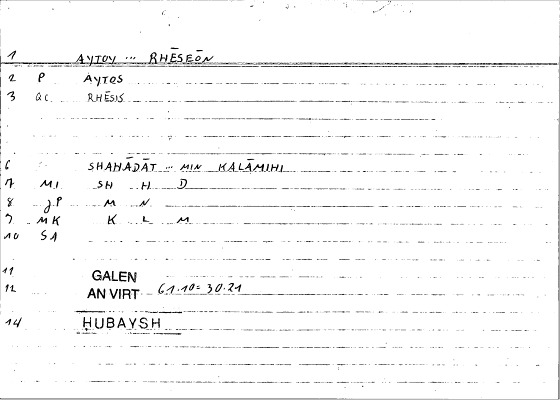 1 AYTOY ... RHĒSEŌN
2 P AYTOS
3 QC RHESIS
6 SHAHĀDĀT ... MIN KALĀMIHI
7 M.I SH H D
8 J.P M N
9 MK K L M
10 S1
11 GALEN
12 AN VIRT 61.10 = 30.21
14 HUBAYSH